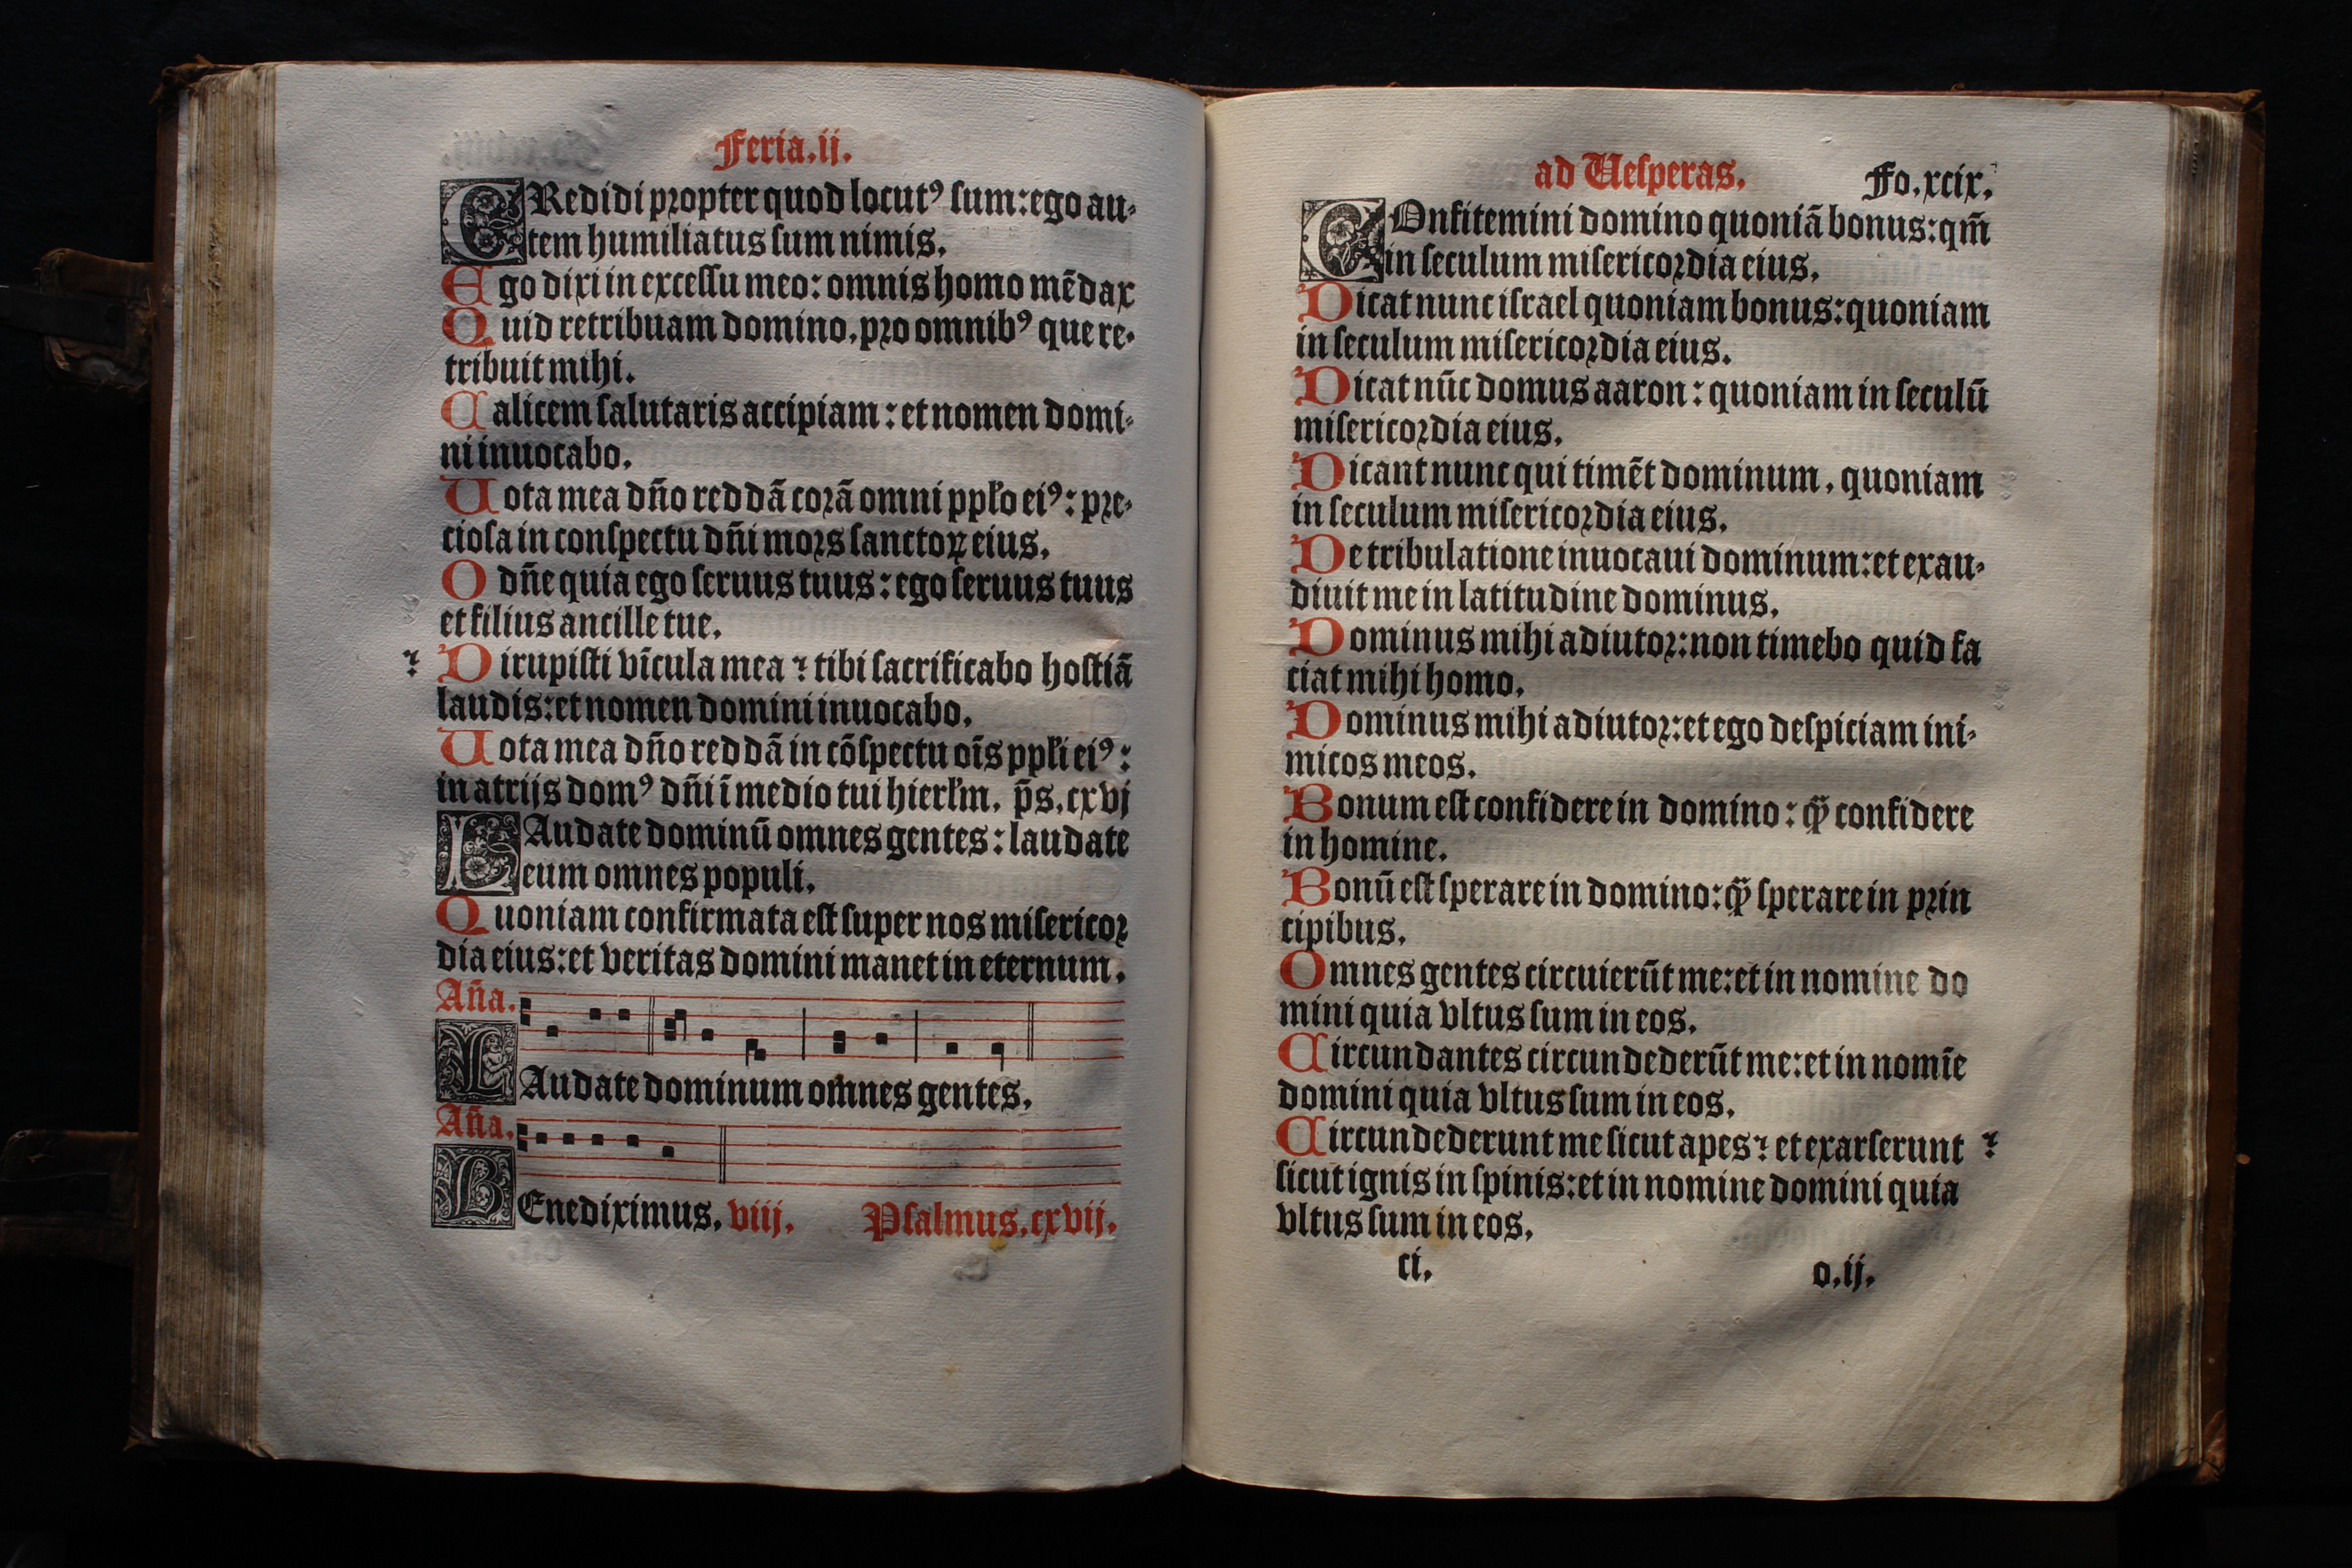 Feria.ij.
CRedidi propter quod locutꝰ ſum:ego au-
tem humiliatus ſum nimis.
Ego dixi in exceſſu meo: omnis homo mēdax
Quid retribuam domino, pro omnibꝰ que re-
tribuit mihi.
Calicem ſalutaris accipiam: et nomen domi-
ni inuocabo.
Uota mea dn̄o reddā corā omni pplo eiꝰ: pre-
cioſa in conſpectu dn̄i mors sanctoꝝ eius.
O dn̄e quia ego ſeruus tuus: ego ſeruus tuus
et filius ancille tue.
Dirupiſti vīcula mea ⁊ tibi ſacrificabo hoſtiā
⁊
laudis:et nomen domini inuocabo.
Uota mea dn̄o reddā in cōſpectu oīs ppli eiꝰ:
in atrijs domꝰ dn̄i ī medio tui hierlm. p̄s.cxvj
LAudate dominū omnes gentes: laudate
eum omnes populi.
Quoniam confirmata eſt ſuper nos miſericor
dia eius:et veritas domini manet in eternum.
An̄a.
LAudate dominum omnes gentes.
An̄a.
BEnediximus. viij. Pſalmus.cxvij.
ad Ueſperas. Fo.xcix.
COnfitemini domino quoniā bonus:qm̄
in ſeculum miſericordia eius.
Dicat nunc iſrael quoniam bonus:quoniam
in ſeculum miſericordia eius.
Dicat nūc domus aaron: quoniam in ſeculū
miſericordia eius.
Dicant nunc qui timēt dominum, quoniam
in ſeculum miſericordia eius.
De tribulatione inuocaui dominum:et exau-
diuit me in latitudine dominus.
Dominus mihi adiutor:non timebo quid fa
ciat mihi homo.
Dominus mihi adiutor:et ego deſpiciam ini-
micos meos.
Bonum eſt confidere in domino: qᷓ confidere
in homine.
Bonū eſt ſperare in domino:qᷓ ſperare in prin
cipibus.
Omnes gentes circuierūt me:et in nomine do
mini quia vltus ſum in eos.
Circundantes circundederūt me:et in nomīe
domini quia vltus ſum in eos.
Circundederunt me ſicut apes⁊ et exarſerunt ⁊
ſicut ignis in ſpinis:et in nomine domini quia
vltus ſum in eos.
ci. o.ij.